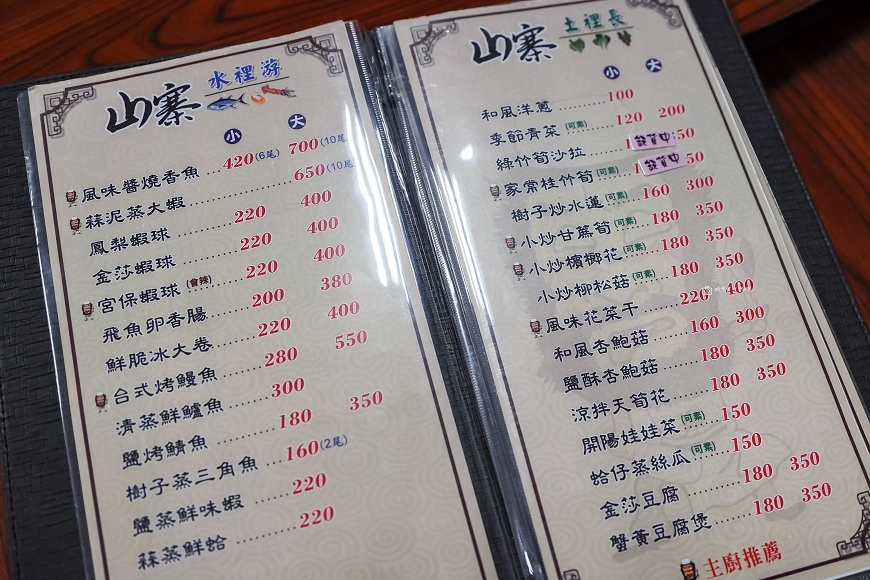 山寨 水裡游
小 大
風味醬燒香魚 ...420(6尾) 700(10尾)
蒜泥蒸大蝦 .................... 650(10尾)
鳳梨蝦球 ........... 220 400
金莎蝦球 ........... 220 400
宮保蝦球(會辣) ...... 220 400
飛魚卵香腸 ........ 200 380
鮮脆冰大卷 ........ 220 400
台式烤鰻魚 ........ 280 550
清蒸鮮鱸魚 ........ 300
鹽烤鯖魚 ........... 180 350
樹子蒸三角魚 ....160(2尾)
鹽蒸鮮味蝦 ......220
蒜蒸鮮蛤 ..........220
山寨 土裡長
小 大
和風洋蔥 ..........100
季節青菜(可素) ......120 200
綠竹筍沙拉 ........1 發育中 50
家常桂竹筍(可素) ...1 發育中 50
樹子炒水蓮(可素) ...160 300
小炒甘蔗筍(可素) ...180 350
小炒檳榔花(可素) ...180 350
小炒柳松菇(可素) ...180 350
風味花菜干 .......220 400
和風杏鮑菇 .......160 300
鹽酥杏鮑菇 .......180 350
涼拌天筍花 .......180 350
開陽娃娃菜(可素) ...150
蛤仔蒸絲瓜(可素) ...150
金莎豆腐 ..........180 350
蟹黃豆腐煲 .......180 350
主廚推薦